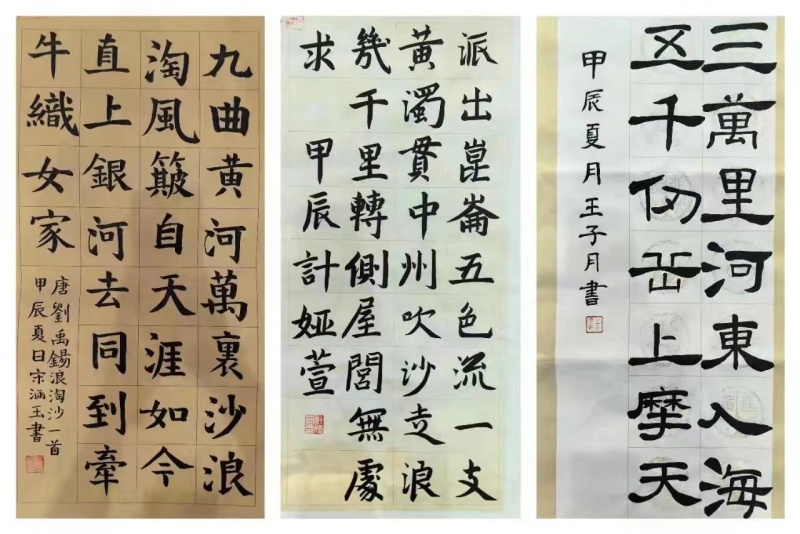 九曲黄河萬裏沙浪
淘風簸自天涯如今
直上銀河去同到牽
牛織女家
唐劉禹錫浪淘沙一首
甲辰夏日宋涵玉書
派出崑崙五色流一支
黄濁貫中州吹沙走浪
幾千里轉側屋閭無處
求 甲辰計婭萱
三萬里河東入海
五千仞岳上摩天
甲辰夏月王子月書